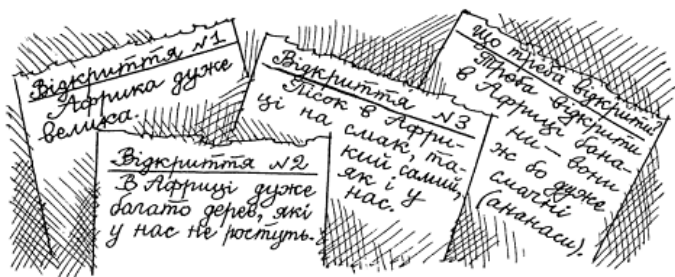 Відкриття №1
Африка дуже
велика.
Відкриття №2
В Африці дуже
багато дерев, які
у нас не ростуть.
Відкриття №3
Пісок в Афри-
ці на смак, та-
кий самий,
як і у
нас.
Що треба відкрити!
Треба відкрити
в Африці бана-
ни — вони
ж бо дуже
смачні
(ананаси).